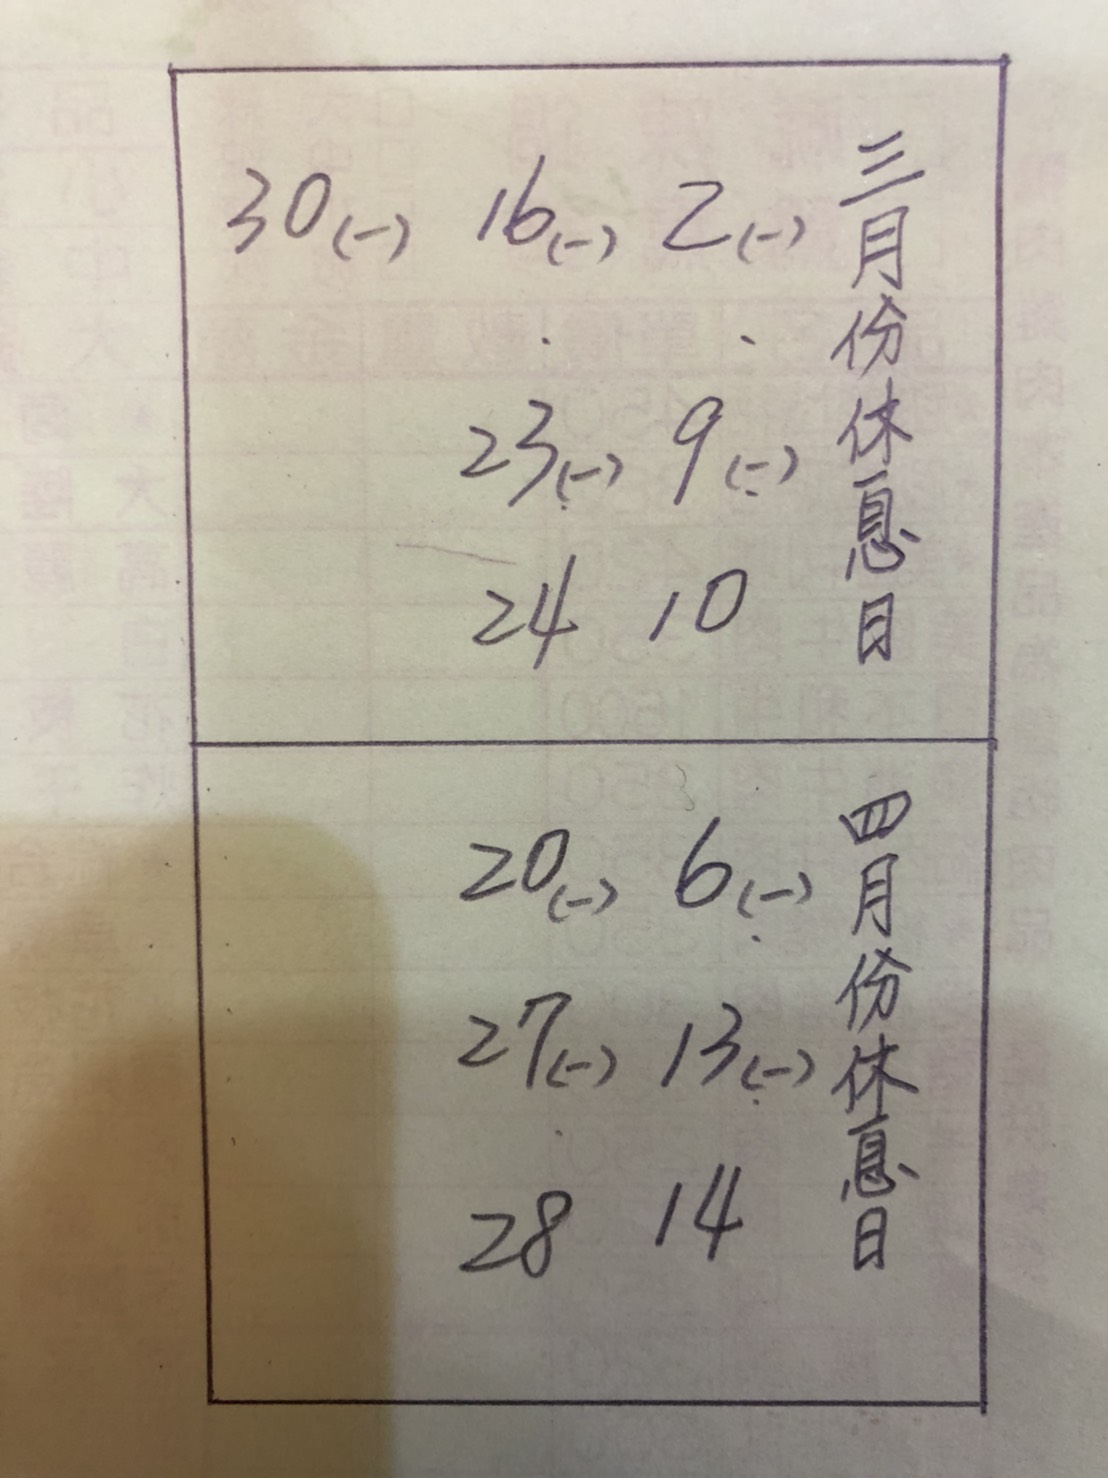 三月份休息日
2(一)
9(一)
10
16(一)
23(一)
24
30(一)
四月份休息日
6(一)
13(一)
14
20(一)
27(一)
28